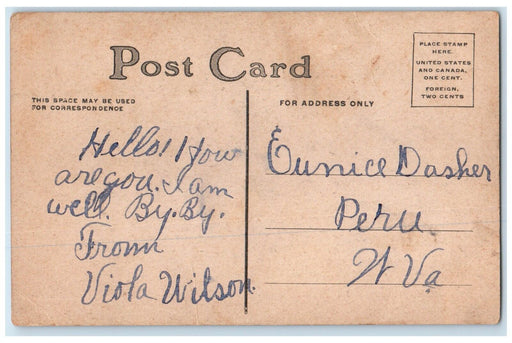 Post Card
PLACE STAMP
HERE.
UNITED STATES
AND CANADA,
ONE CENT.
FOREIGN,
TWO CENTS
THIS SPACE MAY BE USED
FOR CORRESPONDENCE
FOR ADDRESS ONLY
Hello! How
are you. I am
well. By. By.
From
Viola Wilson.
Eunice Dasher
Peru
W Va